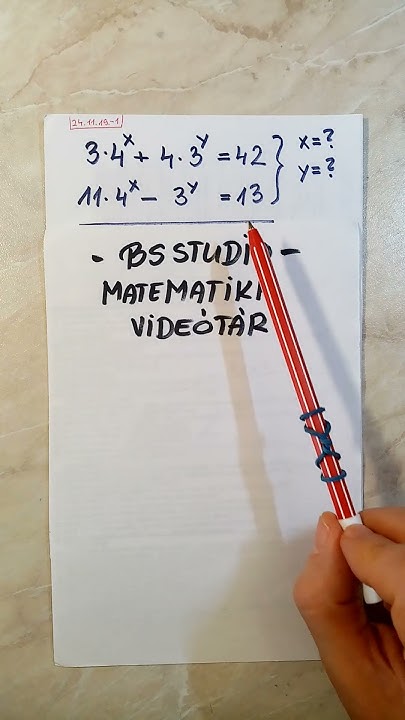 24.11.19-1
3·4^x + 4·3^y = 42 } x=?
11·4^x - 3^y = 13 } y=?
- BS STUDIÓ -
MATEMATIKI
VIDEÓTÁR